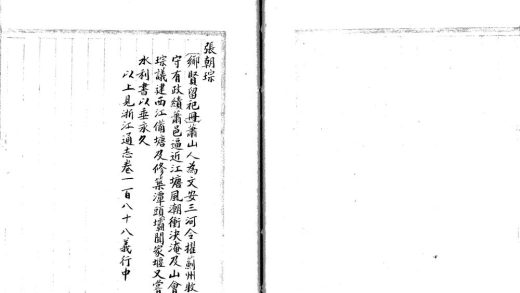 張朝琮
鄉賢留祀冊蕭山人為文安三河令擢薊州牧
守有政績蕭邑逼近江塘風潮衝決淹及山會
琮議建西江備塘及修築潭頭壩聞家堰又嘗
水利書以垂永久
以上見浙江通志卷一百八十八義行中